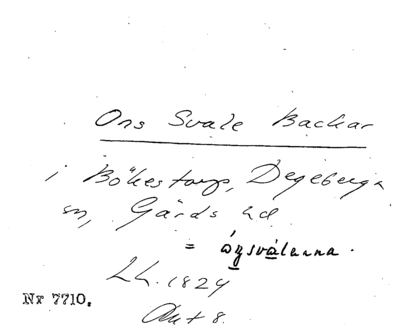 Ons Svale Backar
i Bökestorp, Degeberga
sn, Gärds hd
= óṇsválanna.
LL. 1829
Akt 8.
Nr 7710.